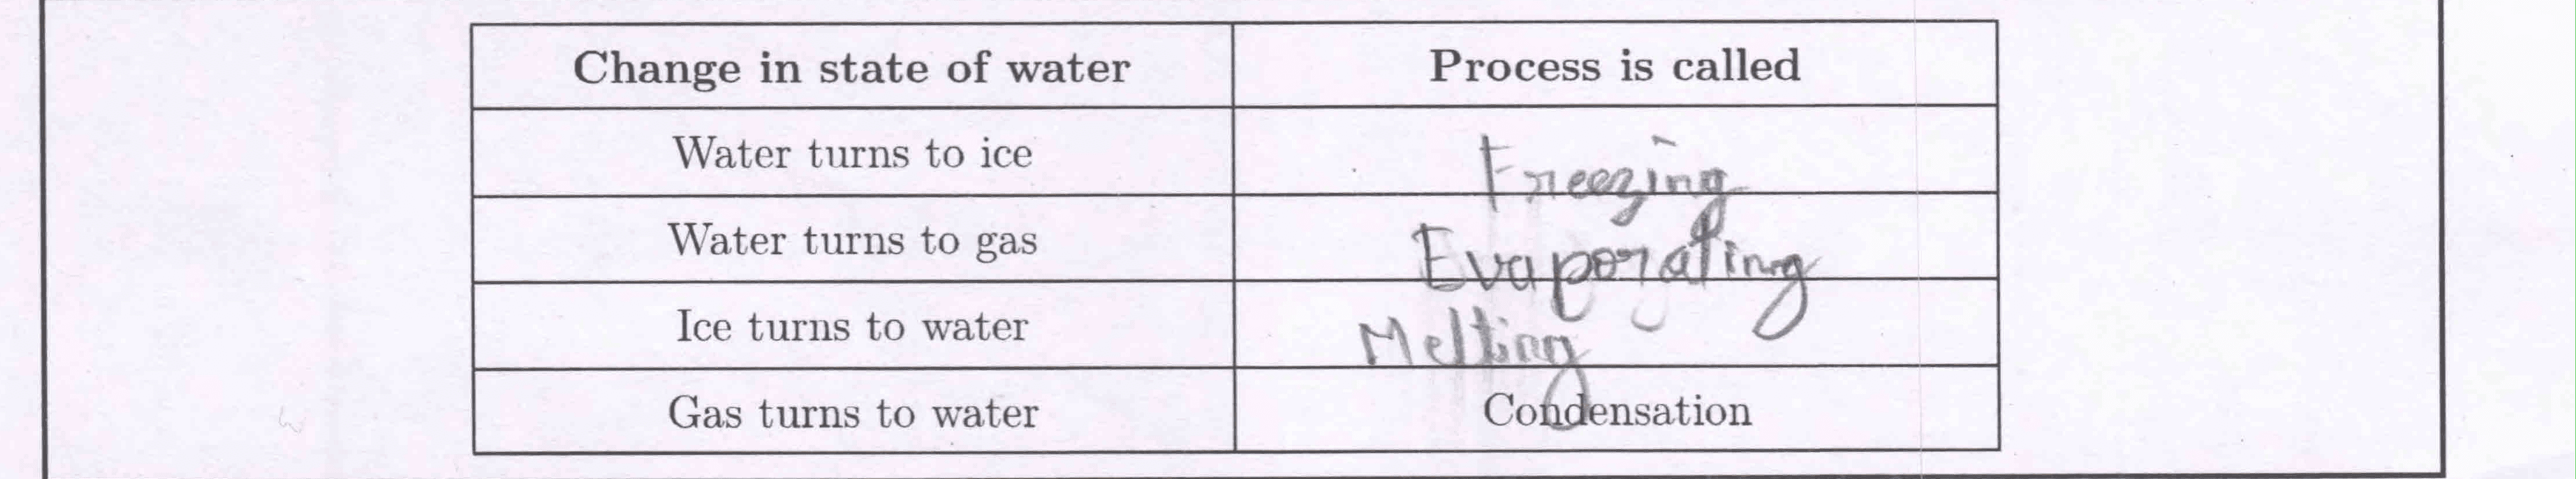 Change in state of water Process is called
Water turns to ice Freezing
Water turns to gas Evaporating
Ice turns to water Melting
Gas turns to water Condensation